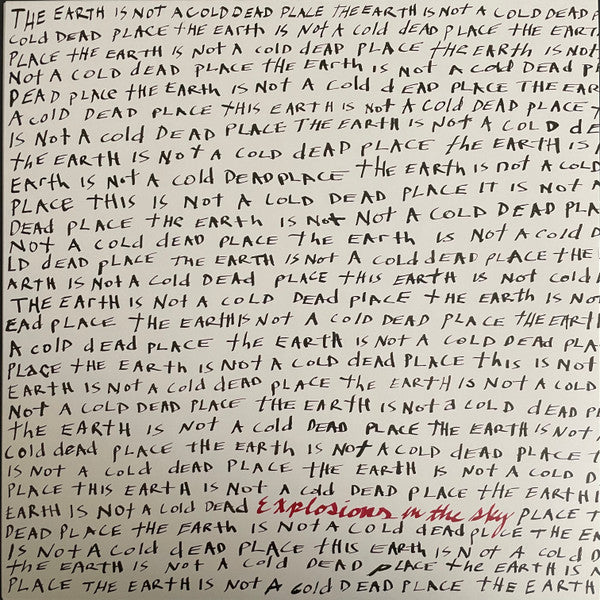 THE EARTH IS NOT A COLD DEAD PLACE THE EARTH IS NOT A COLD DEAD P
COLD DEAD PLACE THE EARTH IS NOT A COLD dEAD PLACE THE EART
PLACE THE EARTH IS NOT A COLD dEAD PLACE THE EARTH IS NOT
NOT A COLD dEAD PLACE THE EARTH IS NOT A COLD DEAD Pl
DEAD PLACE THE EARTH IS NOT A COLD d EAD PLACE THE EAR
A COLD DEAD PLACE THIS EARTH IS NOT A COLD DEAD PLACE T
IS NOT A COLD DEAD PLACE THE EARTH IS NOT A COLD dE
THE EARTH IS NOT A COLD dEAD PLACE THE EARTH IS
EARTH IS NOT A COLD DEAD PLACE THE EARTH IS NOT A COLD
PLACE THIS IS NOT A COLD DEAD PLACE IT IS NOT A
DEAD PLACE THE EARTH IS NOT NOT A COLD DEAD PLA
NOT A COLD dEAD PLACE THE EARTH IS NOT A COLD D
LD dEAD PLACE THE EARTH IS NOT A COLD dEAD PLACE THE
ARTH IS NOT A COLD DEAD PLACE THIS EARTH IS NOT COLD
THE EARTH IS NOT A COLD DEAD PLACE THE EARTH IS NO
EAD PLACE THE EARTH IS NOT A COLD DEAD PLACE THE EARTH
A COLD dEAD PLACE THE EARTH IS NOT A COLD DEAD PLA
PLACE THE EARTH IS NOT A COLD dEAD PLACE THIS IS NOT
EARTH IS NOT A COLD dEAD PLACE THE EARTH IS NOT A COLD
NOT A COLD DEAD PLACE THE EARTH IS NOT a COLD dEAD P
THE EARTH IS NOT A COLD DEAD PLACE THE EARTH IS NOT
COLD dEAD PLACE THE EARTH IS NOT A COLD dEAD PLACE T
IS NOT A COLD dEAD PLACE THE EARTH IS NOT A COLD D
PLACE THIS EARTH IS NOT A COLD DEAD PLACE THE EARTH I
EARTH IS NOT A COLD DEAD Explosions in the sky PLACE T
DEAD PLACE THE EARTH IS NOT A COLD dEAD PLACE THE EA
IS NOT A COLD dEAD PLACE THIS EARTH IS NOT A COLD D
THE EARTH IS NOT A COLD DEAD PLACE THE EARTH IS N
PLACE THE EARTH IS NOT A COLD DEAD PLACE THE EARTH